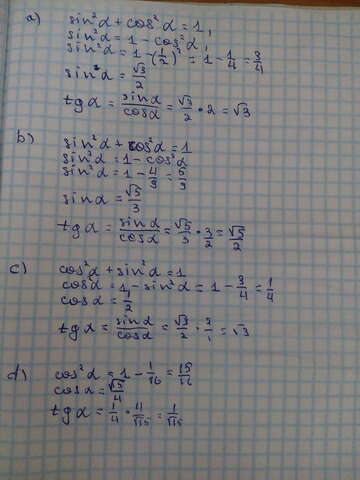 a) sin²α + cos²α = 1,
sin²α = 1 - cos²α,
sin²α = 1 - (1/2)² = 1 - 1/4 = 3/4
sin²α = √3/2
tg α = sinα/cosα = √3/2 • 2 = √3
b) sin²α + cos²α = 1
sin²α = 1 - cos²α
sin²α = 1 - 4/9 = 5/9
sinα = √5/3
tg α = sinα/cosα = √5/3 • 3/2 = √5/2
c) cos²α + sin²α = 1
cos²α = 1 - sin²α = 1 - 3/4 = 1/4
cosα = 1/2
tg α = sinα/cosα = √3/2 • 2/1 = √3
d) cos²α = 1 - 1/16 = 15/16
cosα = √15/4
tg α = 1/4 • 4/√15 = 1/√15